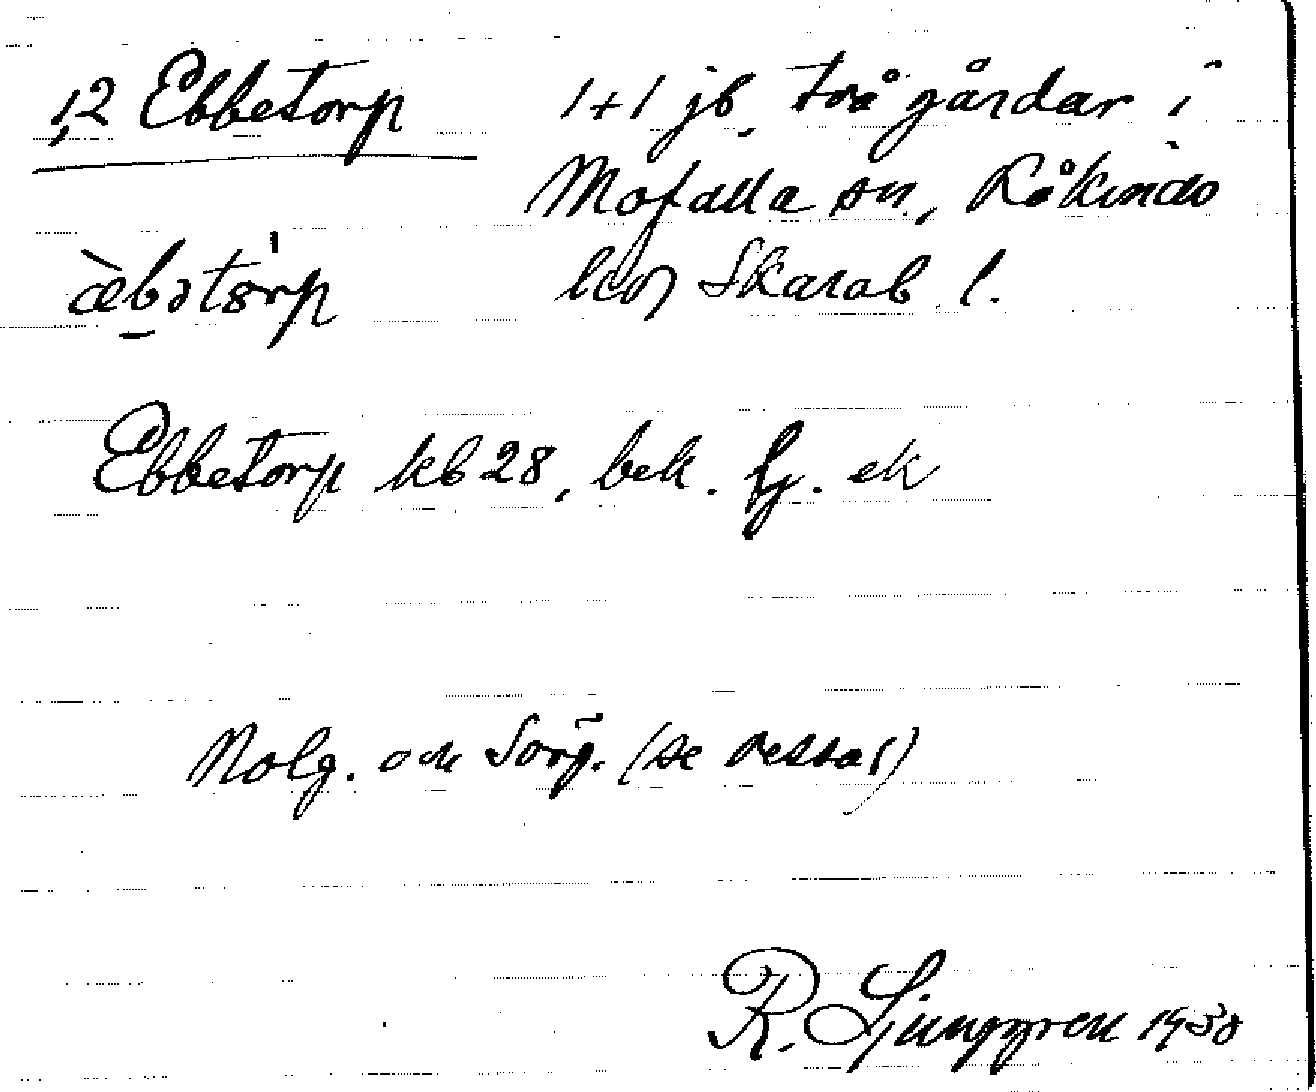 1,2 Ebbetorp 1+1 jb, två gårdar i
Mofalla sn, Kåkinds
hd, Skarab. l.
Ebbetorp kb 28, bek. fj. ek
Nolg. och Sörg. (se dessa!)
R. Ljunggren 1930